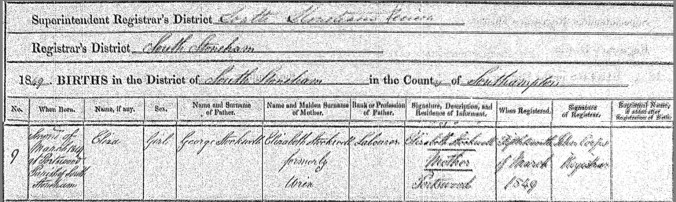 Superintendent Registrar's District South Stoneham Union
Registrar's District South Stoneham
1849. BIRTHS in the District of South Stoneham in the County of Southampton
No. When Born. Name, if any. Sex. Name and Surname of Father. Name and Maiden Surname of Mother. Rank or Profession of Father. Signature, Description, and Residence of Informant. When Registered. Signature of Registrar. Baptismal Name, if added after Registration of Birth.
9 Second of March 1849 at Portswood Parish of South Stoneham
Eliza
Girl
George Stockwell
Elizabeth Stockwell formerly Wren
Labourer
Elizabeth Stockwell Mother Portswood
of March 1849
John Registrar